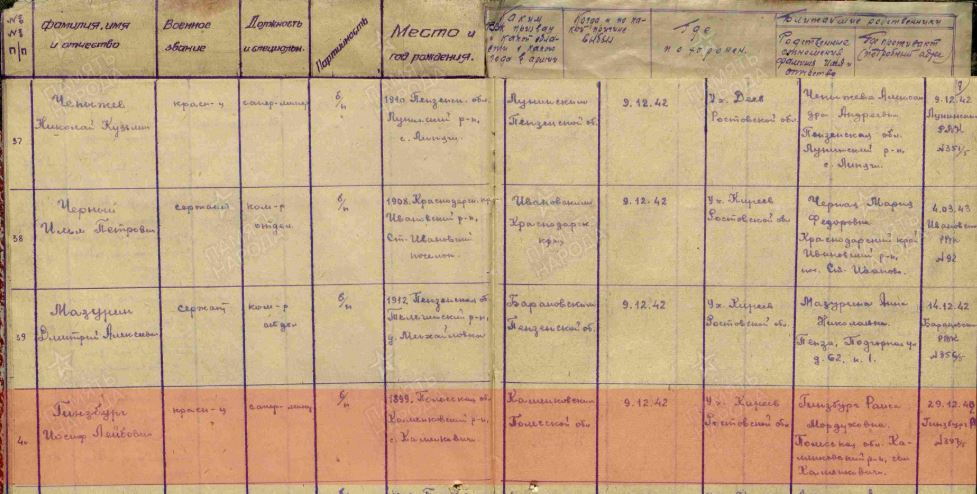 №№ п/п
Фамилия, имя
и отчество
Военное
звание
Должность
и специальн.
Партийность
Место и
год рождения.
Каким
РВК призван
Когда и по ка-
кой причине
выбыл
Где
похоронен.
Ближайшие родственники
Родственные
отношения
фамилия имя и
отчество
Где проживают
37
Николай Кузьмич
красн-ц
сапер-минер
б/п
1910. Пензенс. обл.
Лунинский р-н,
Лунинским
Пензенской об.
9.12.42
Ух. Деев
Ростовской обл.
Андреевна
Пензенская обл.
Лунинский р-н,
9.12.42
Лунинский
РВК
38
Черный
Илья Петрович
сержант
ком-р
отдел
б/п
1908. Краснодарск. кр.
Ивановский р-н,
Ст. Ивановский
поселок.
Ивановским
Краснодарск.
край
9.12.42
Ух. Киреев
Ростовской обл
Черная Мария
Федоровна
Краснодарский край
Ивановский р-н,
пос. Ст. Иванов.
4.03.43
Ивановск
РВК
№92
39
Мазурин
Дмитрий Алексеев
сержант
ком-р
отдел
б/п
1912. Пензенская об
Телегинский р-н,
д. Михайловка
Пензенской об.
9.12.42
Ух. Киреев
Ростовской обл.
Мазурина Анна
Николаевна.
Пенза, Подгорная ул
д. 62, к. 1.
14.12.42
РВК
40
Гинзбург
Иосиф Лейбович
красн-ц
сапер-минер
б/п
1899. Полесская об.
Калинковский р-н,
с. Калинковичи
Калинковским
Полесской об.
9.12.42
Ух. Киреев
Ростовской обл.
Гинзбург Раиса
Мордуховна.
Полесская обл. Ка-
линковский р-н, сел
Калинковичи.
Гинзбург Р